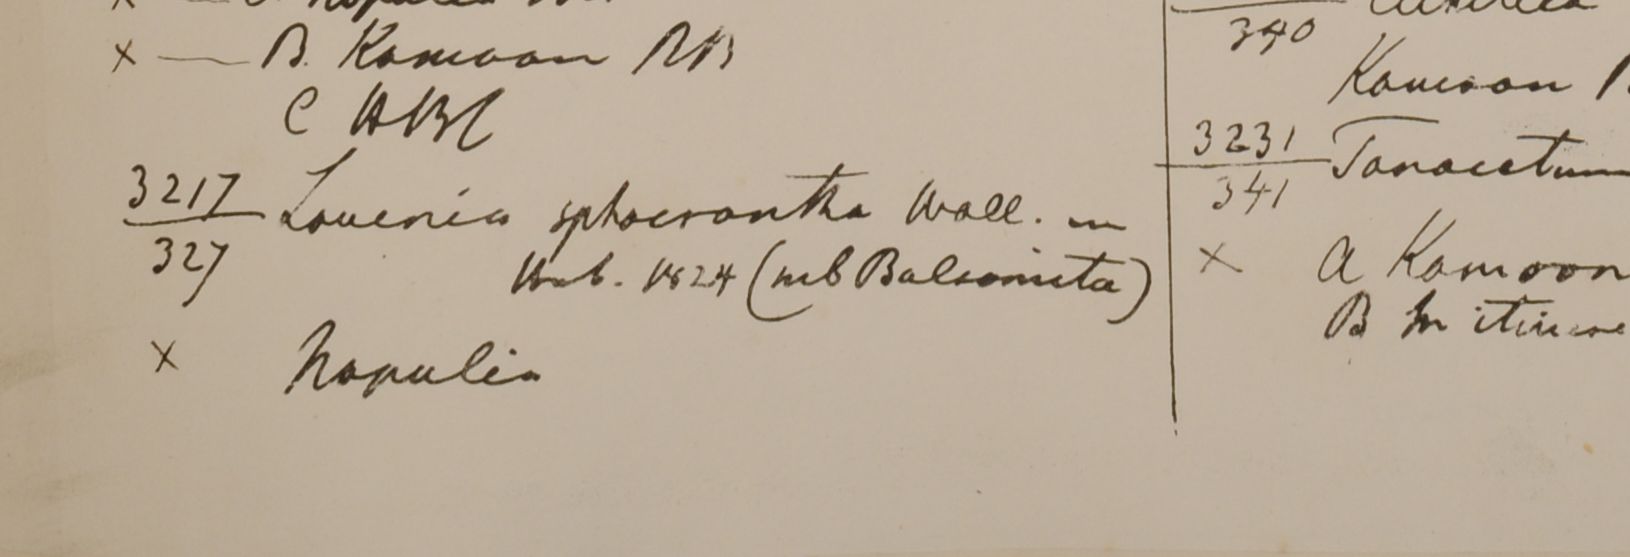 × — B. Kamoon RB
C HBC
3217
327
Lavenia sphaerantha Wall. in
Herb. 1824 (mb Balsamita)
× Napalia
340
Kamoon
3231
341
Tanacetum
× A Kamoon
B In itinere